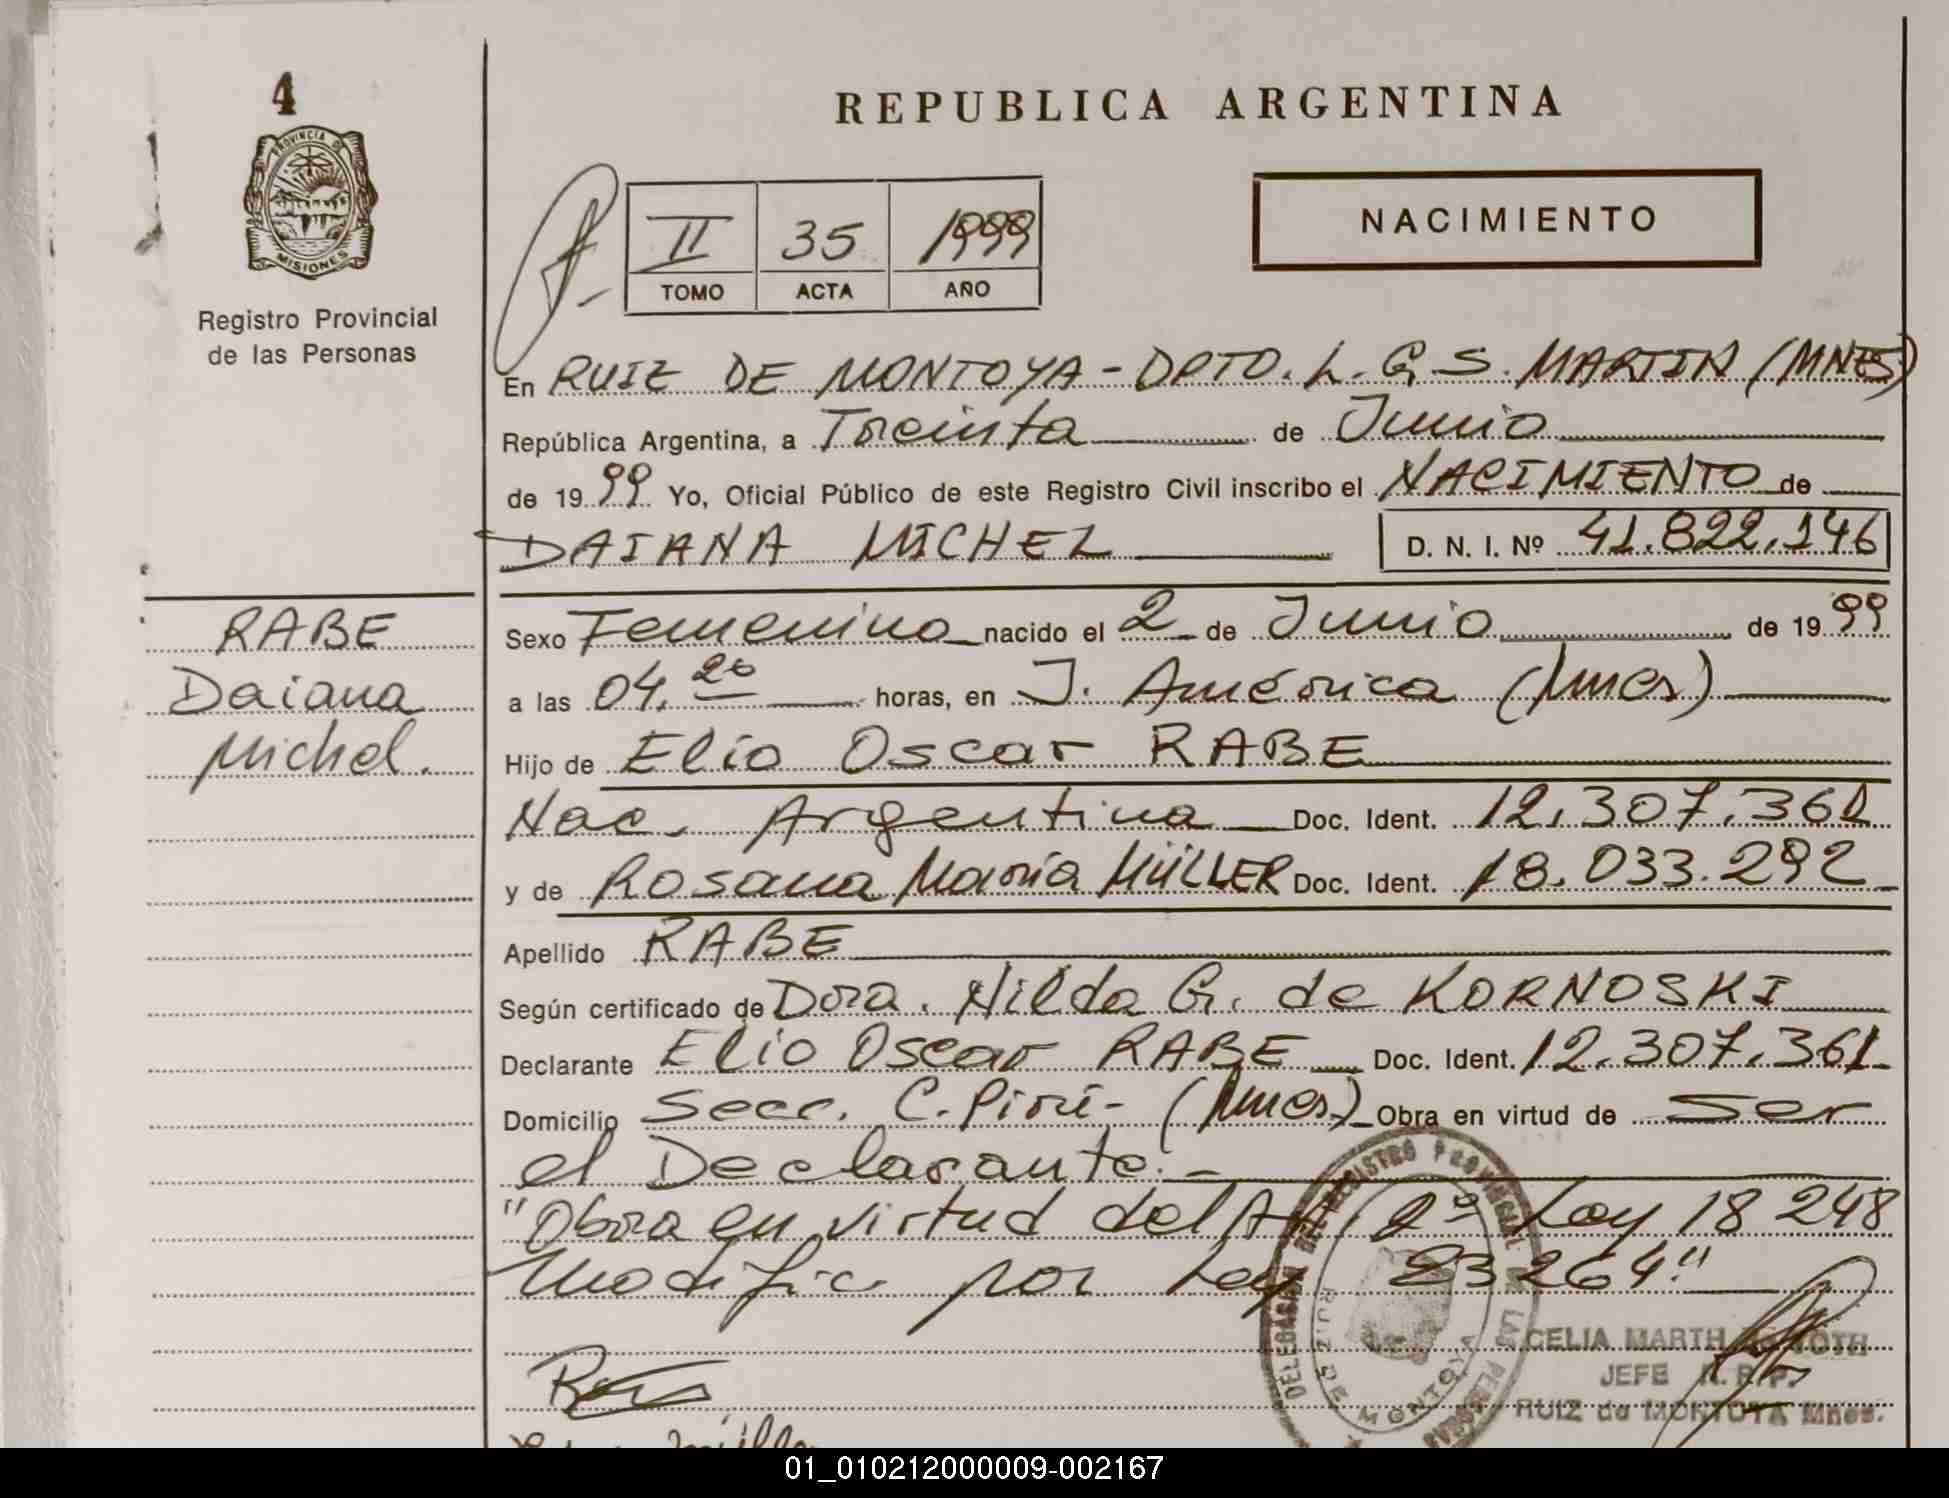 4
PROVINCIA DE
MISIONES
Registro Provincial
de las Personas
REPUBLICA ARGENTINA
II 35 1999
TOMO ACTA AÑO
NACIMIENTO
En RUIZ DE MONTOYA - DPTO. L. G. S. MARTIN (MNES)
República Argentina, a Treinta de Junio
de 1999 Yo, Oficial Público de este Registro Civil inscribo el NACIMIENTO de
DAIANA MICHEL D. N. I. Nº 41.822.146
RABE
Daiana
Michel.
Sexo Femenino nacido el 2 de Junio de 1999
a las 04.20 horas, en J. América (Mnes)
Hijo de Elio Oscar RABE
Nac. Argentina Doc. Ident. 12.307.361
y de Rosana María MÜLLER Doc. Ident. 18.033.292
Apellido RABE
Según certificado de Dra. Nilda G. de KORNOSKI
Declarante Elio Oscar RABE Doc. Ident. 12.307.361
Domicilio Secc. C. Pirí - (Mnes) Obra en virtud de Ser
el Declarante. -
"Obra en virtud del Art. 2º Ley 18 248
Modific por Ley 23 264"
DELEGACION DEL REGISTRO PROVINCIAL DE LAS PERSONAS
RUIZ DE MONTOYA
CELIA MARTH
JEFE R. P. P.
RUIZ de MONTOYA Mnes.
01_010212000009-002167